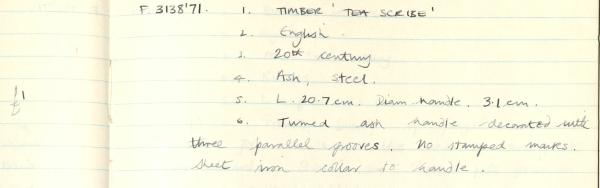 F. 3138'71. 1. TIMBER 'TEA SCRIBE'
2. English.
3. 20th century
4. Ash, steel.
5. L. 20.7cm. Diam handle. 3.1cm.
6. Turned ash handle decorated with
three parallel grooves. No stamped marks.
Sheet iron collar to handle.